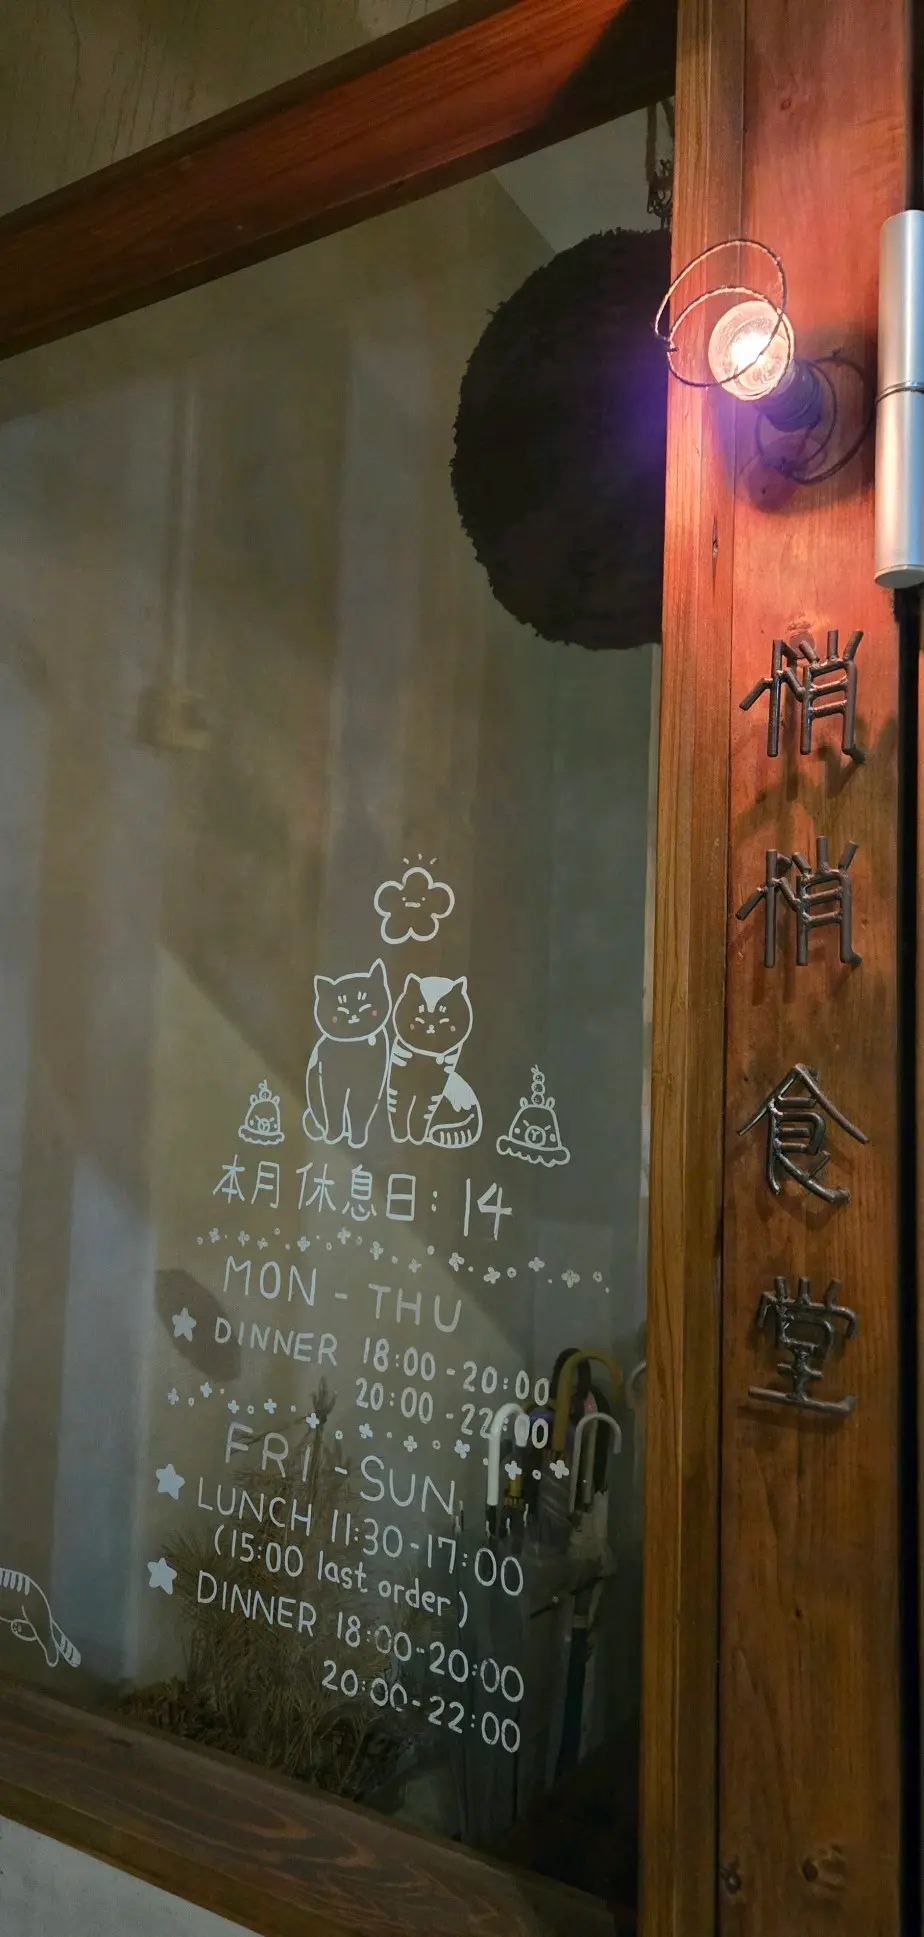 本月休息日: 14
MON - THU
DINNER 18:00-20:00
20:00-22:00
FRI - SUN
LUNCH 11:30-17:00
(15:00 last order)
DINNER 18:00-20:00
20:00-22:00
悄悄食堂